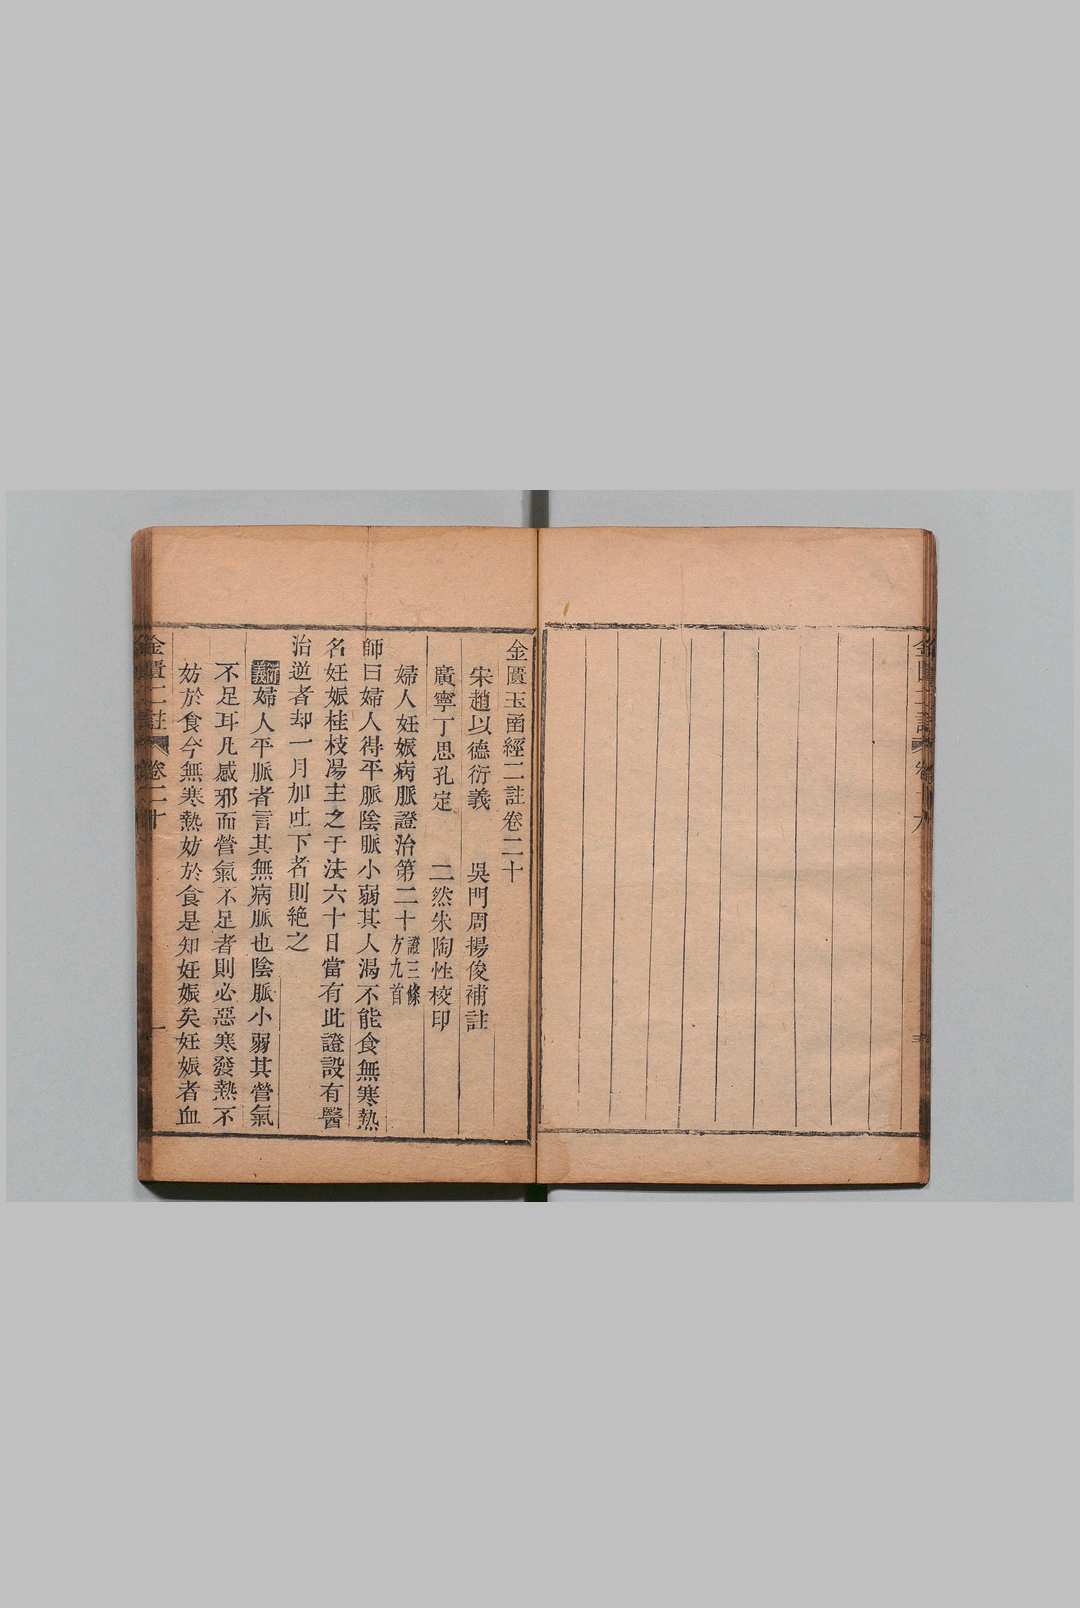 金匱玉函經二註卷二十
宋趙以德衍義 吳門周揚俊補註
廣寧丁思孔定 二然朱陶性校印
婦人妊娠病脈證治第二十 證三條 方九首
師曰婦人得平脈陰脈小弱其人渴不能食無寒熱
名妊娠桂枝湯主之于法六十日當有此證設有醫
治逆者却一月加吐下者則絶之
衍義 婦人平脈者言其無病脈也陰脈小弱其營氣
不足耳凡感邪而營氣不足者則必惡寒發熱不
妨於食今無寒熱妨於食是知妊娠矣妊娠者血
金匱二註 卷二十 一